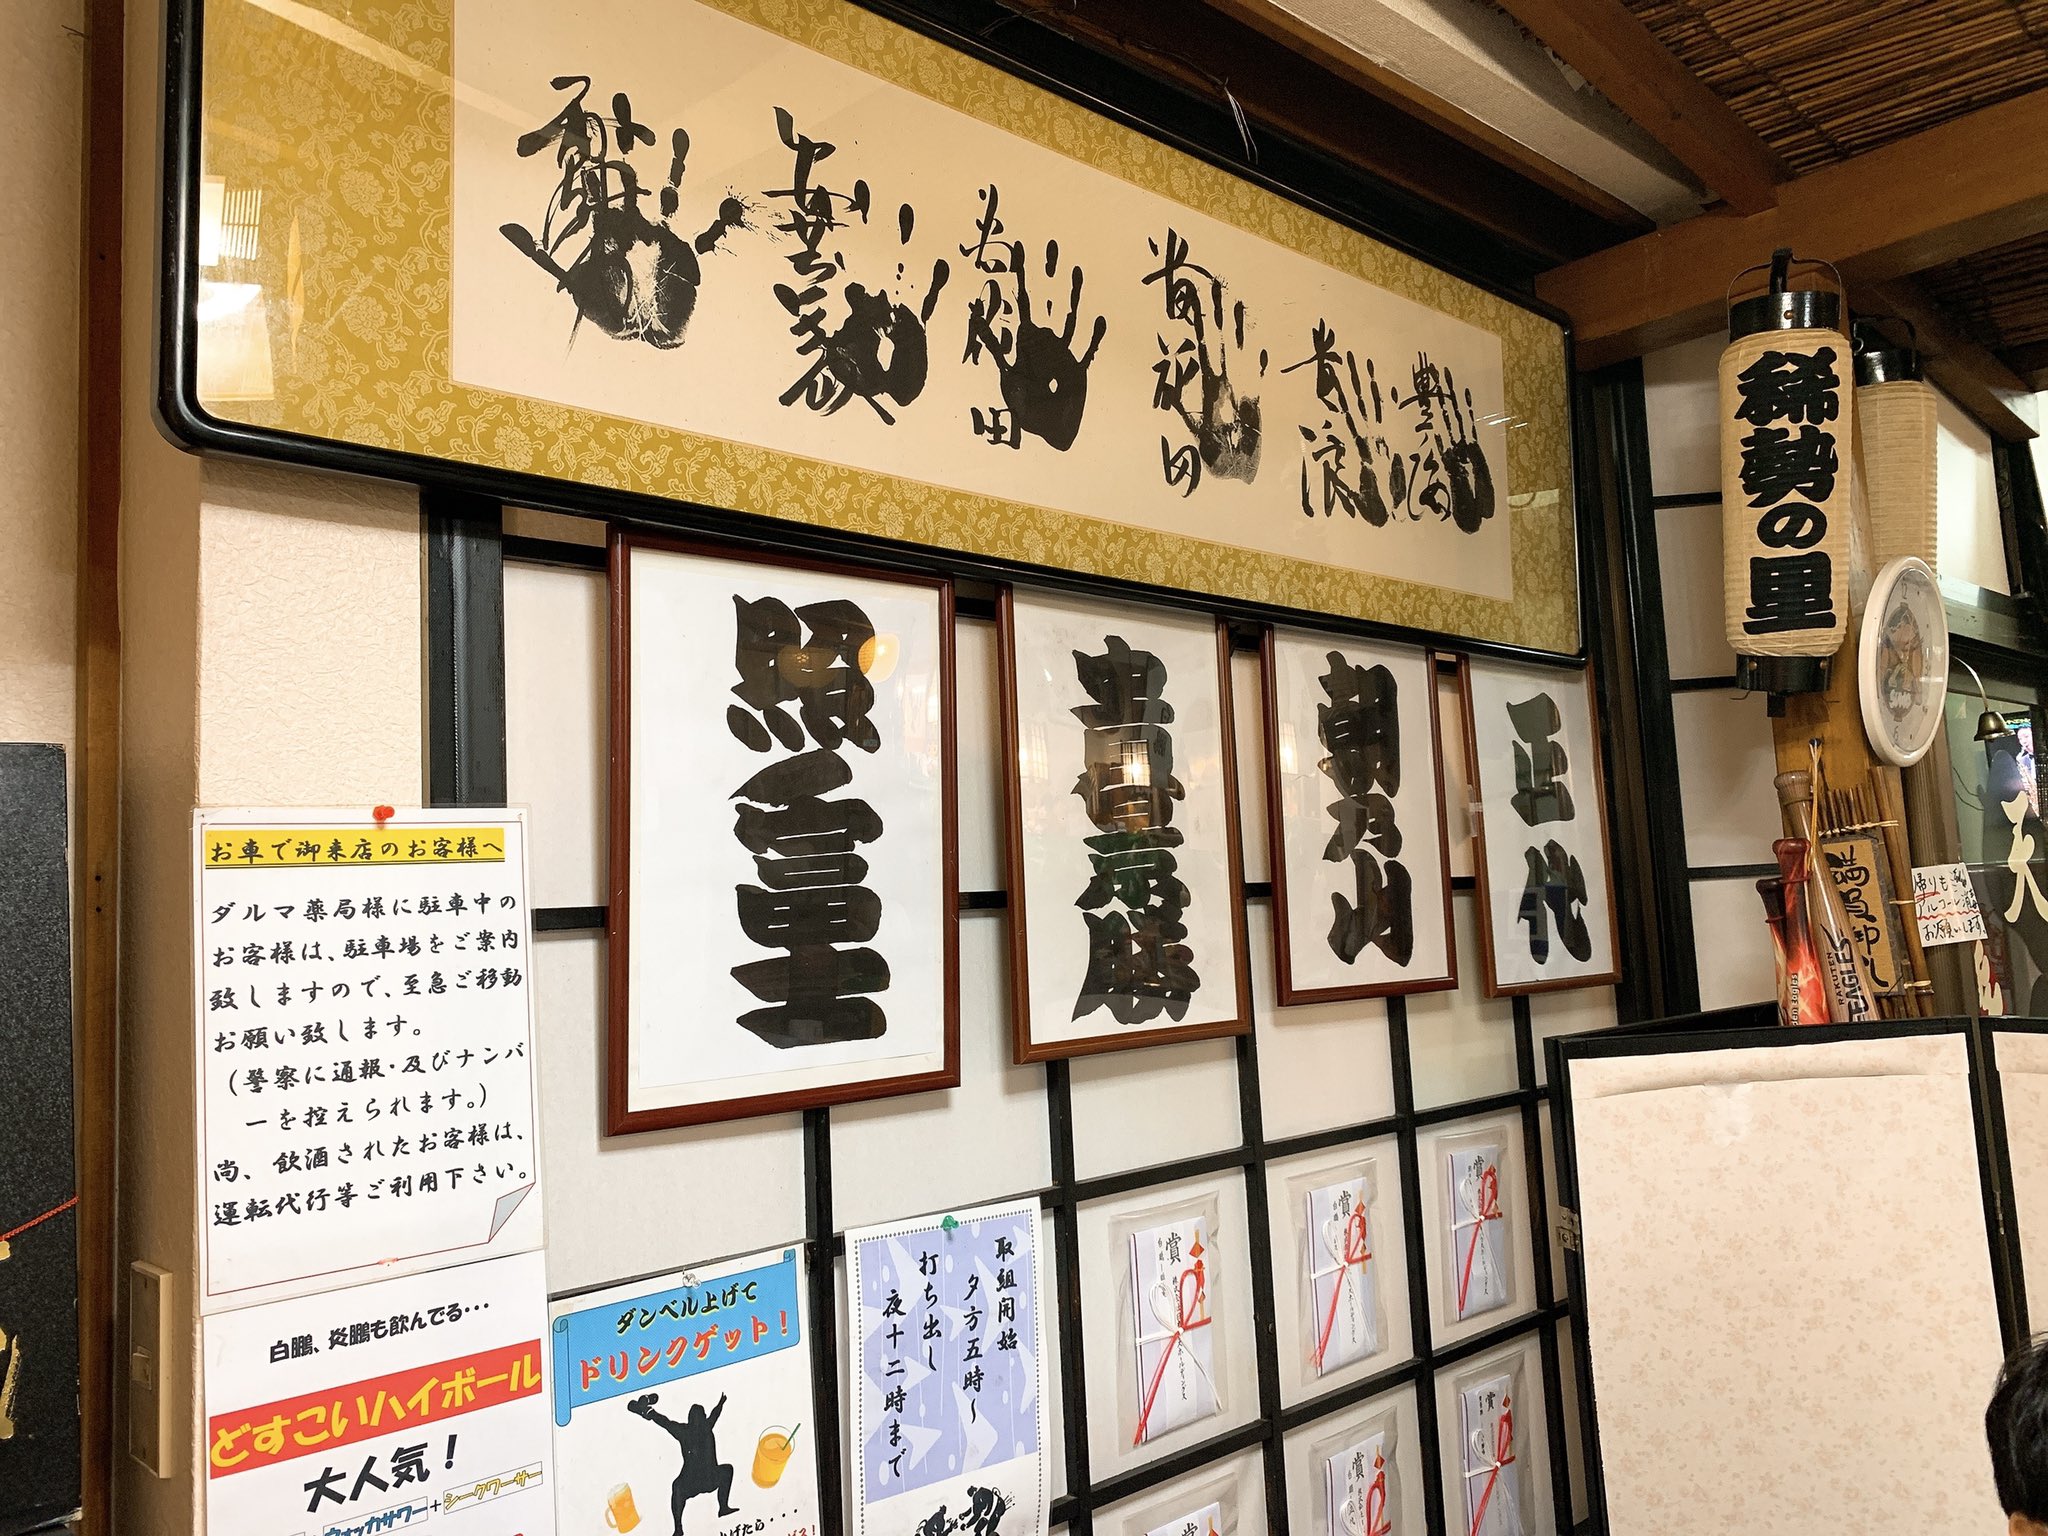 貴花田
貴花田
貴浪
豊ノ海
安芸ノ島
照ノ富士
貴景勝
朝乃山
正代
稀勢の里
お車で御来店のお客様へ
ダルマ薬局様に駐車中の
お客様は、駐車場をご案内
致しますので、至急ご移動
お願い致します。
(警察に通報・及びナンバ
ーを控えられます。)
尚、飲酒されたお客様は、
運転代行等ご利用下さい。
白鵬、炎鵬も飲んでる・・・
どすこいハイボール
大人気!
ウォッカサワー+シークワーサー
ダンベル上げて
ドリンクゲット!
上げたら・・・
取組開始
夕方五時~
打ち出し
夜十二時まで
賞
白鵬
賞
白鵬
賞
白鵬
賞
白鵬
賞
賞
満員御礼
RAKUTEN
EAGLES
帰りも
アルコール消毒
お願いします。
天